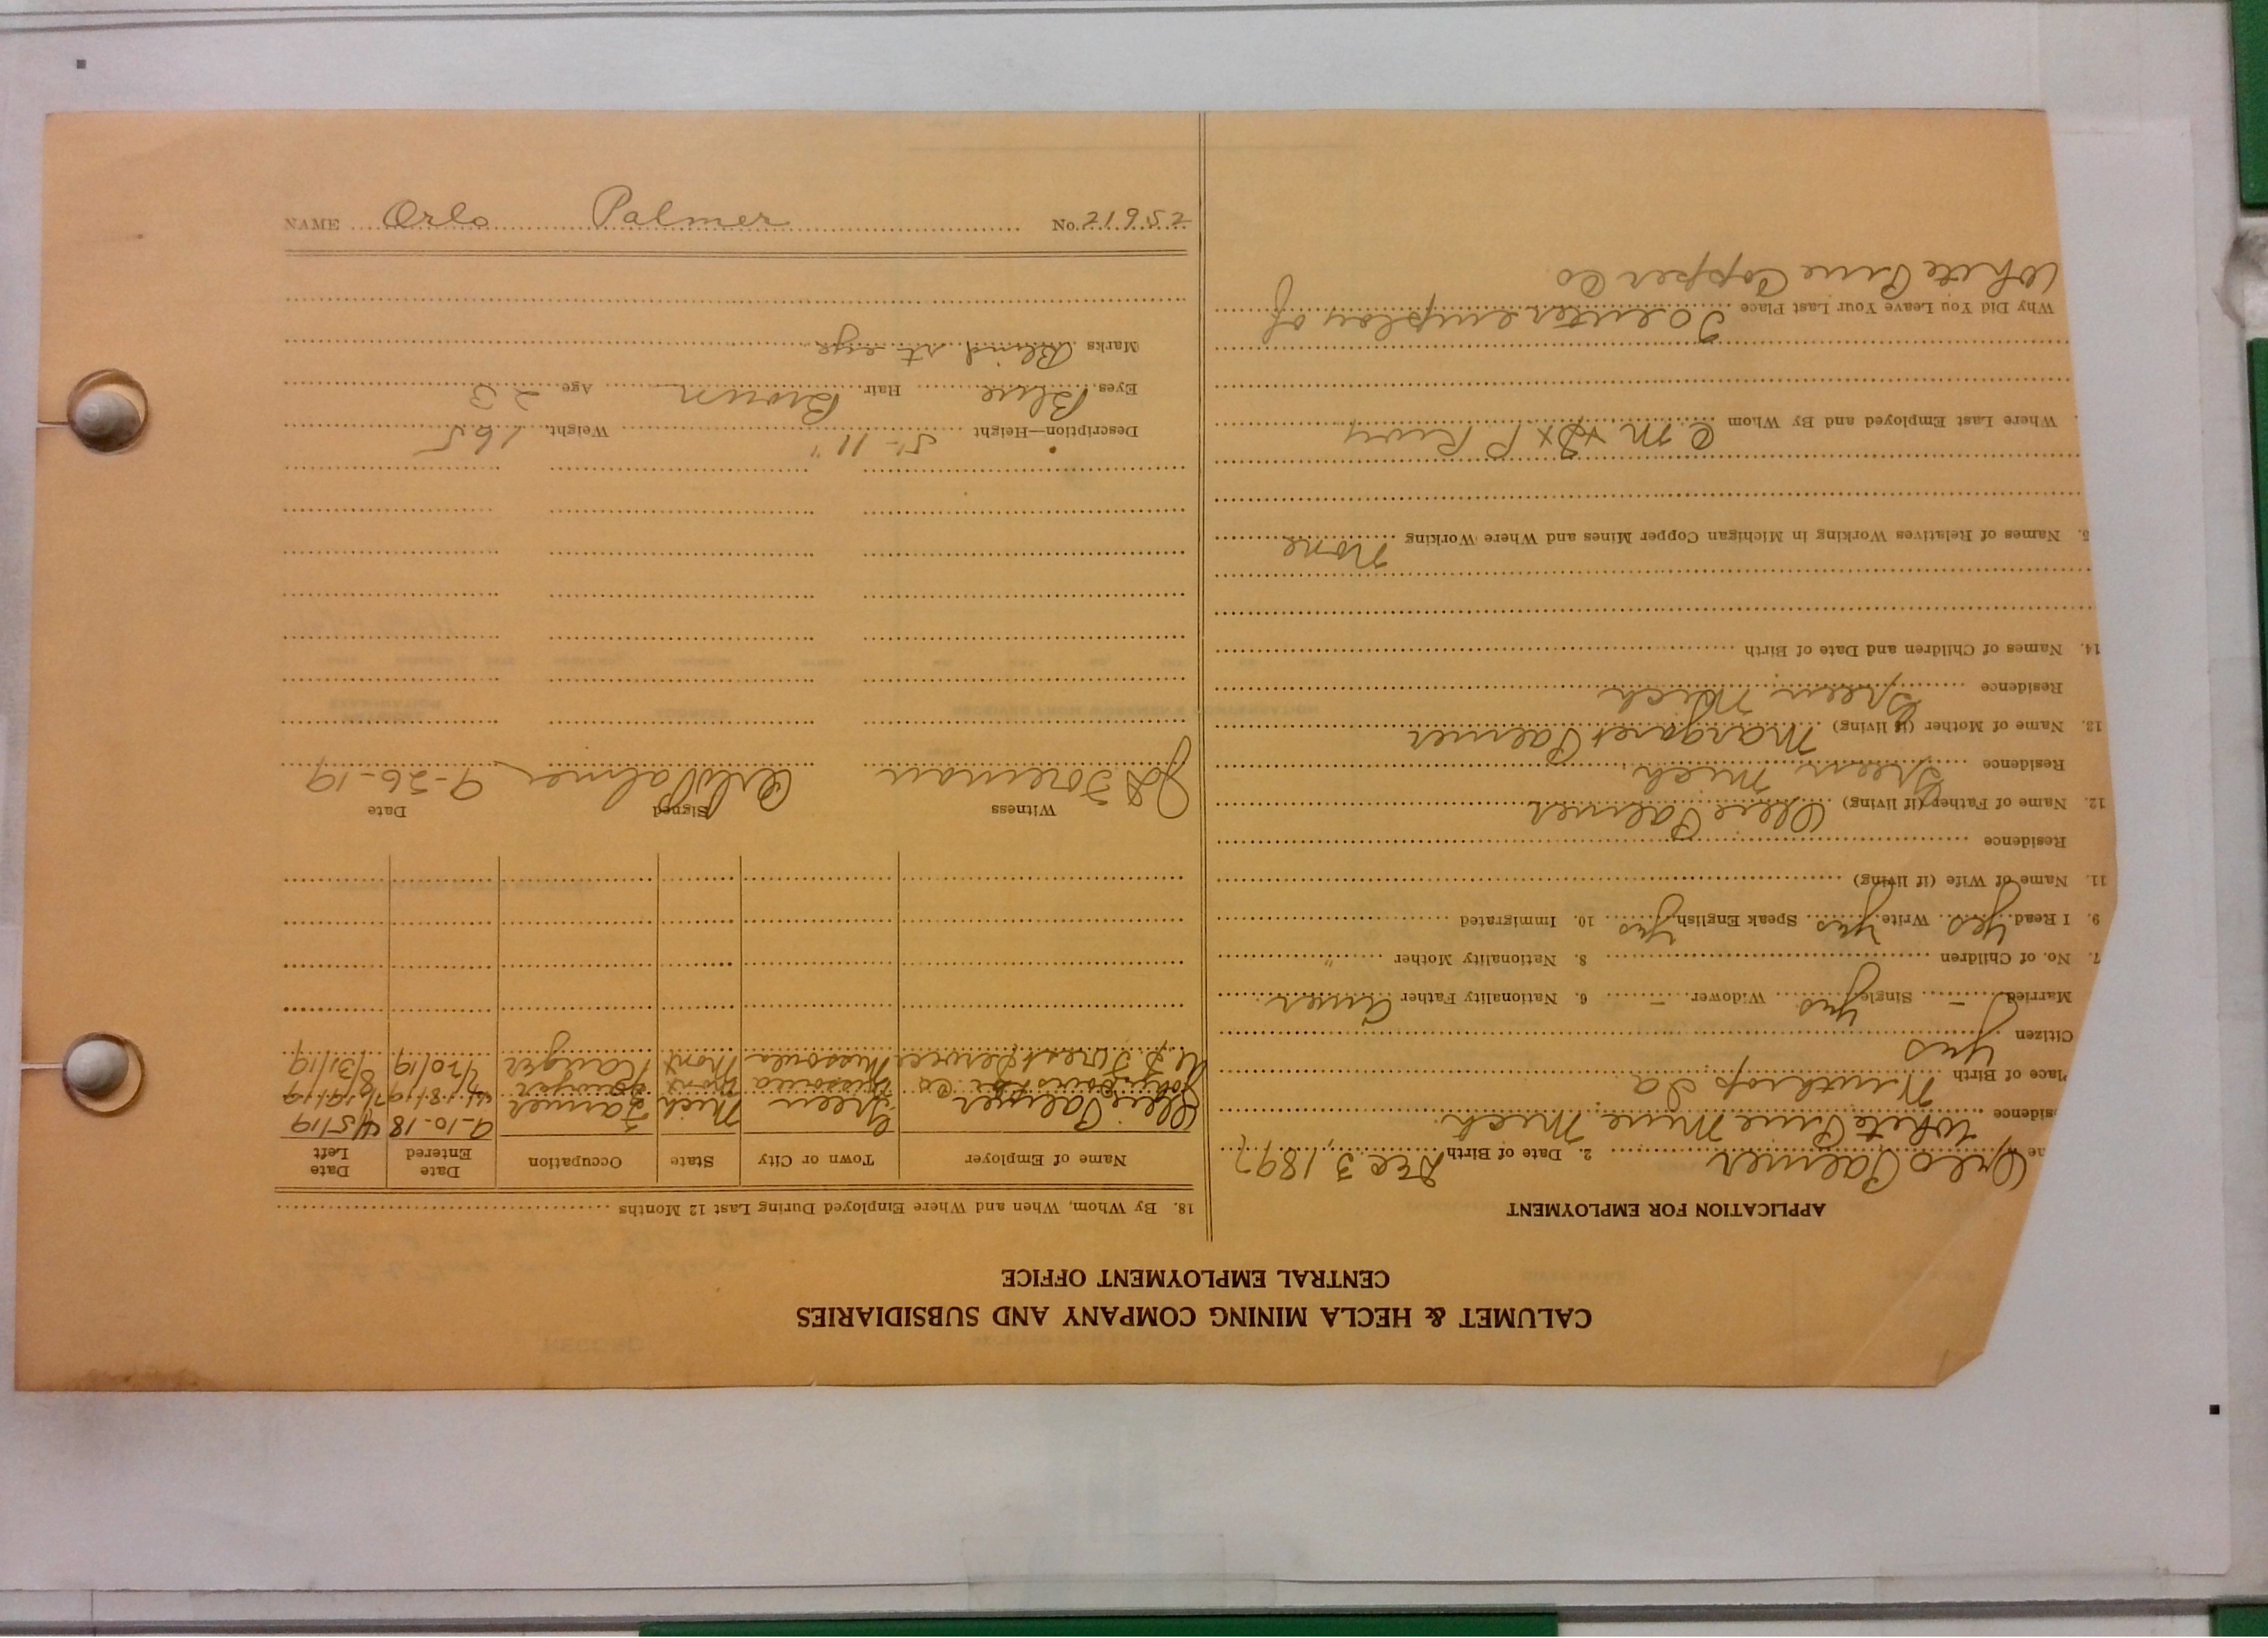 CALUMET & HECLA MINING COMPANY AND SUBSIDIARIES
CENTRAL EMPLOYMENT OFFICE
APPLICATION FOR EMPLOYMENT
me Orlo Palmer 2. Date of Birth Dec 3, 1897
sidence White Pine Mine Mich.
Place of Birth Winthrop Ia
Citizen yes
Married – Single yes Widower – 6. Nationality Father Amer
7. No. of Children 8. Nationality Mother "
9. I Read yes Write yes Speak English yes 10. Immigrated
11. Name of Wife (if living)
Residence
12. Name of Father (if living) Ollie Palmer
Residence Green Mich.
13. Name of Mother (if living) Margaret Palmer
Residence Green Mich
14. Names of Children and Date of Birth
5. Names of Relatives Working in Michigan Copper Mines and Where Working None
Where Last Employed and By Whom C M & St P Rwy
Why Did You Leave Your Last Place To enter employ of
White Pine Copper Co
18. By Whom, When and Where Employed During Last 12 Months
Name of Employer Town or City State Occupation Date Entered Date Left
Ollie Palmer Green Mich Farmer 9-10-18 4/5/19
Missoula Mont Sawyer 4/18/19
U.S. Forest Service Missoula Mont Ranger 7/20/19 8/31/19
Witness Signed Date
Foreman Orlo Palmer 9-26-19
Description—Height 5'-11" Weight 165
Eyes Blue Hair Brown Age 23
Marks Blind rt eye
NAME Orlo Palmer No. 21952